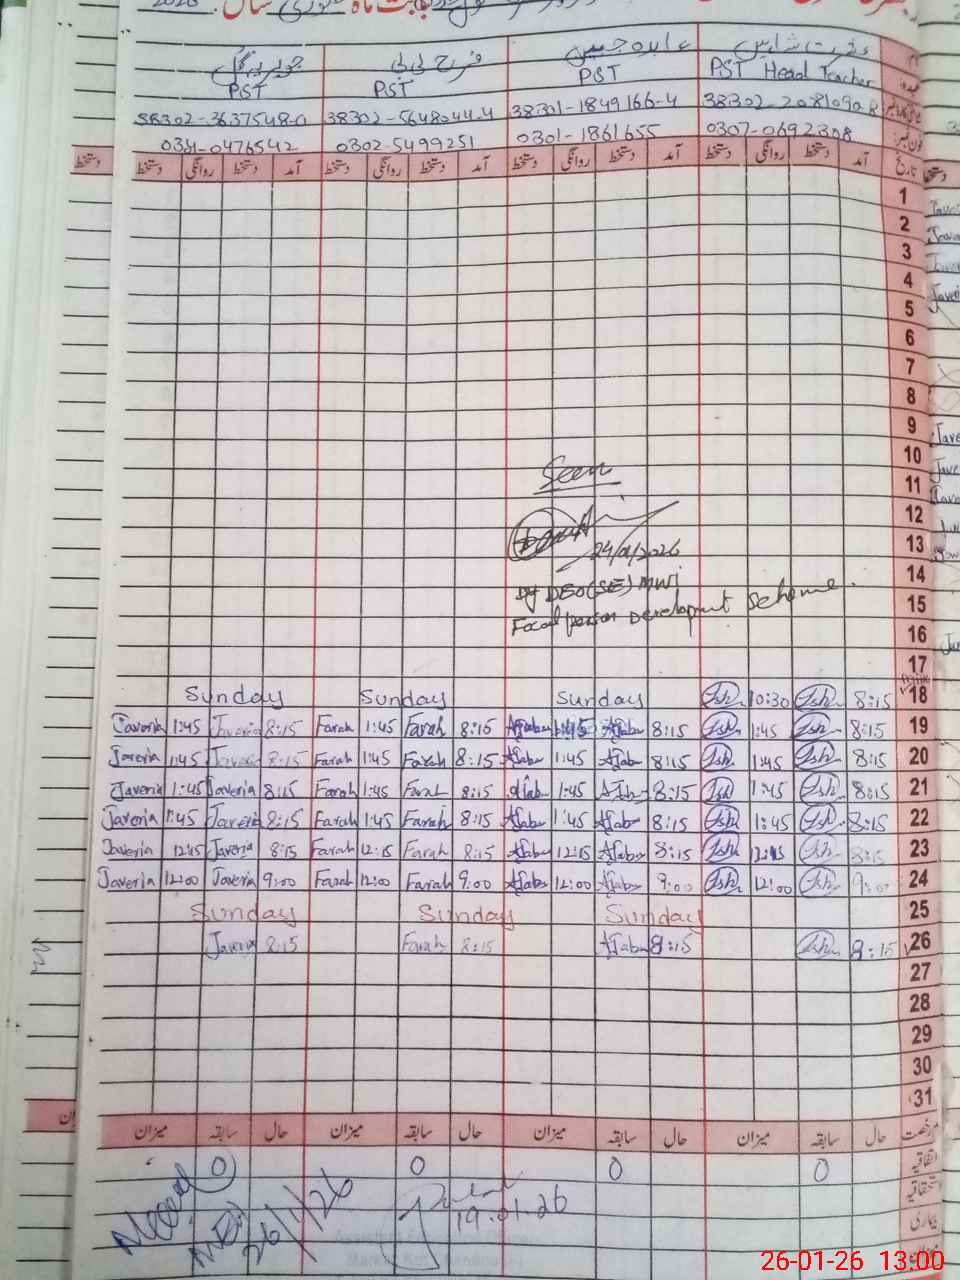 ماہ جنوری سال 2026
عشرت شاہین عابدہ جبیں فرح بی بی جویریہ گل
PST Head Teacher PST PST PST
38302-2081090-8 38301-1849166-4 38302-5648044-4 38302-3637548-0
0307-0692308 0301-1861655 0302-5499251 0341-0476542
تاریخ آمد دستخط روانگی دستخط آمد دستخط روانگی دستخط آمد دستخط روانگی دستخط آمد دستخط روانگی دستخط
1
2
3
4
5
6
7
8
9
10
Seen
11
12
24/01/2026
13
14
Dy DEO (SE) MWI
15
Focal person Development Scheme.
16
17
18 8:15 Ish 10:30 Ish Sunday Sunday Sunday
19 8:15 Ish 1:45 Ish 8:15 Ajab 1:45 Ajab 8:15 Farah 1:45 Farah 8:15 Javeria 1:45 Javeria
20 8:15 Ish 1:45 Ish 8:15 Ajab 1:45 Ajab 8:15 Farah 1:45 Farah 8:15 Javeria 1:45 Javeria
21 8:15 Ish 1:45 Ish 8:15 Ajab 1:45 Ajab 8:15 Farah 1:45 Farah 8:15 Javeria 1:45 Javeria
22 8:15 Ish 1:45 Ish 8:15 Ajab 1:45 Ajab 8:15 Farah 1:45 Farah 8:15 Javeria 1:45 Javeria
23 8:15 Ish 12:15 Ish 8:15 Ajab 12:15 Ajab 8:15 Farah 12:15 Farah 8:15 Javeria 12:45 Javeria
24 9:00 Ish 12:00 Ish 9:00 Ajab 12:00 Ajab 9:00 Farah 12:00 Farah 9:00 Javeria 12:00 Javeria
25 Sunday Sunday Sunday
26 8:15 Ish 8:15 Ajab 8:15 Farah 8:15 Javeria
27
28
29
30
31
رخصت حال سابقہ میزان حال سابقہ میزان حال سابقہ میزان حال سابقہ میزان
اتفاقیہ 0 0 0 0
استحقاقیہ
بیماری
میزان
19.01.26
26/1/26
26-01-26 13:00